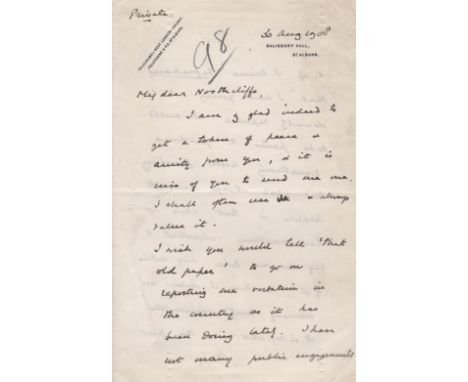 Private
TELEGRAMS: WEST LONDON COLNEY.
TELEPHONE 6 P.O. ST ALBANS.
98
30 Aug 1908
SALISBURY HALL,
ST ALBANS.
My dear Northcliffe.
I am glad indeed to
get a token of peace &
amity from you, & it is
nice of you to send me one.
I shall often use it & always
value it.
I wish you would tell 'that
old paper' to go on
reporting me verbatim in
the country as it has
been doing lately. I have
not many public engagements